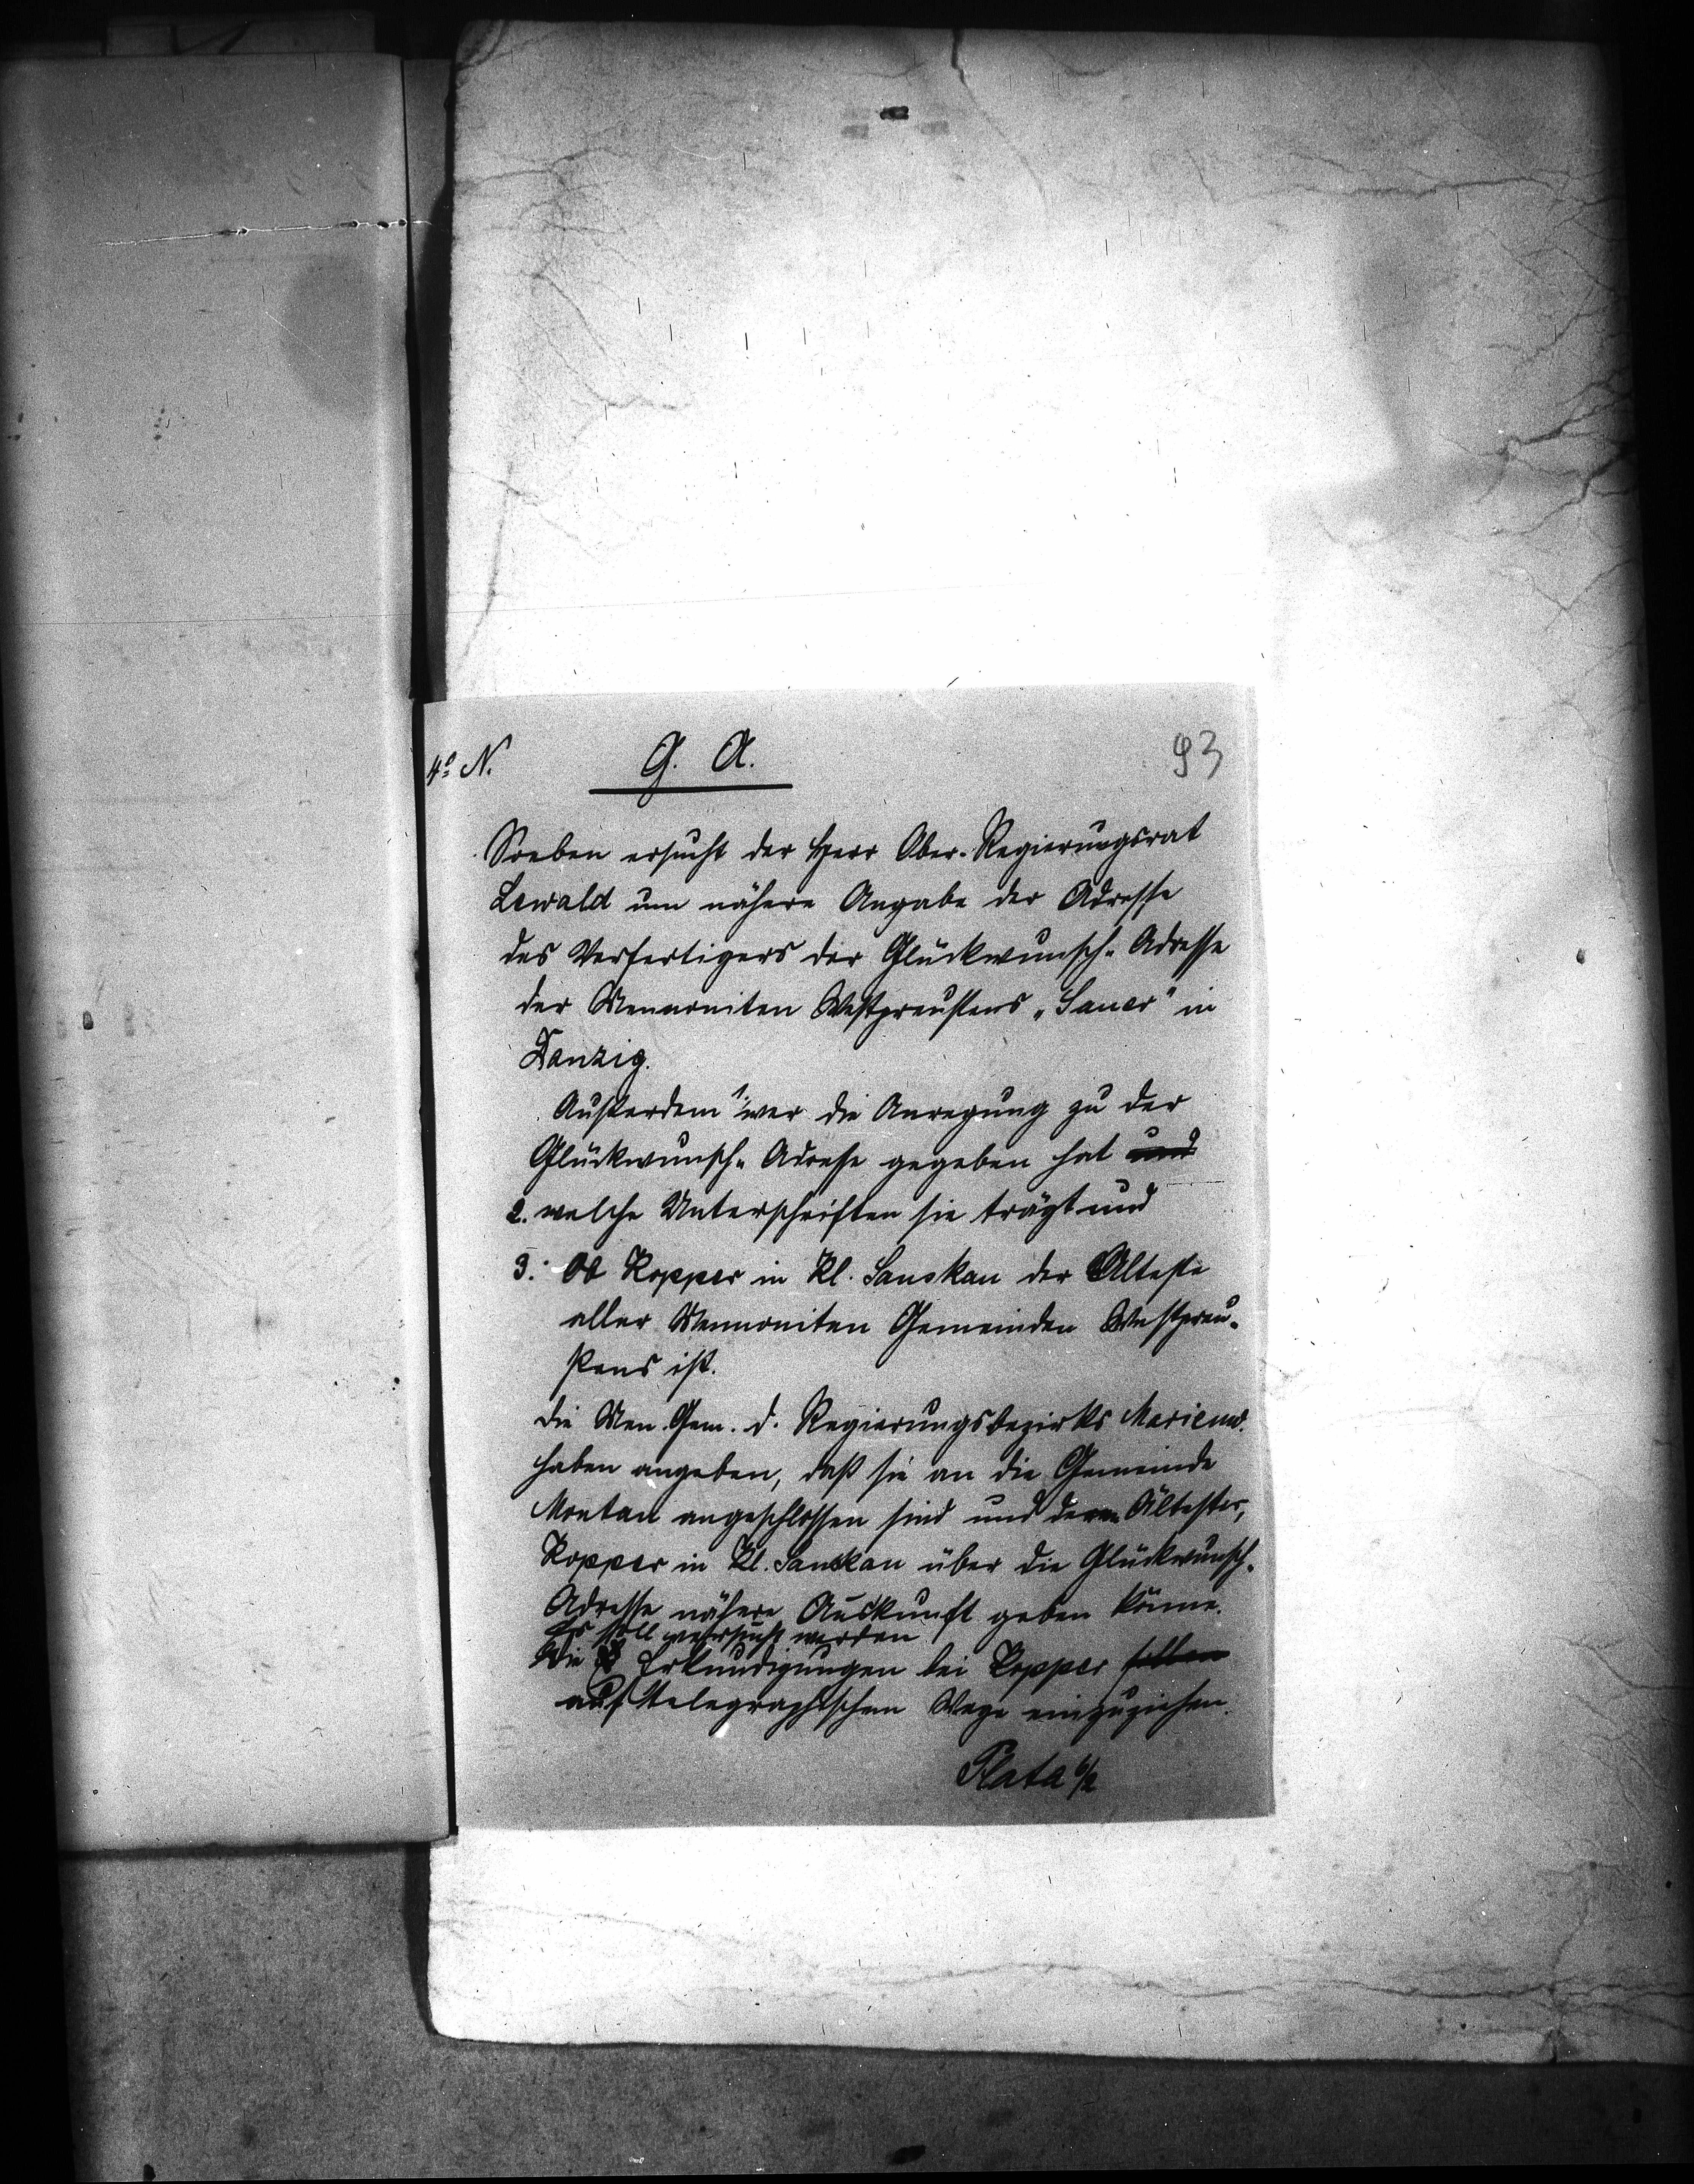 4° N. G. A. 93
Soeben ersucht der Herr Ober-Regierungsrat
Lewald um nähere Angabe der Adresse
des Verfertigers der Glückwunsch-Adresse
der Mennoniten Westpreußens „Sauer" in
Danzig.
Außerdem 1. wer die Anregung zu der
Glückwunsch-Adresse gegeben hat und
2. welche Unterschriften sie trägt und
3. Ob Kopper in Kl. Sanskau der Älteste
aller Mennoniten Gemeinden Westpreu-
ßens ist.
Die Men. Gem. d. Regierungsbezirks Marienw.
haben angeben, daß sie an die Gemeinde
Montau angeschlossen sind und deren Ältester,
Kopper in Kl. Sanskau über die Glückwunsch-
Adresse nähere Auskunft geben könne.
Es soll versucht werden
Die Erkundigungen bei Kopper sollen
auf telegraphischem Wege einzuziehen.
Plata 6/2